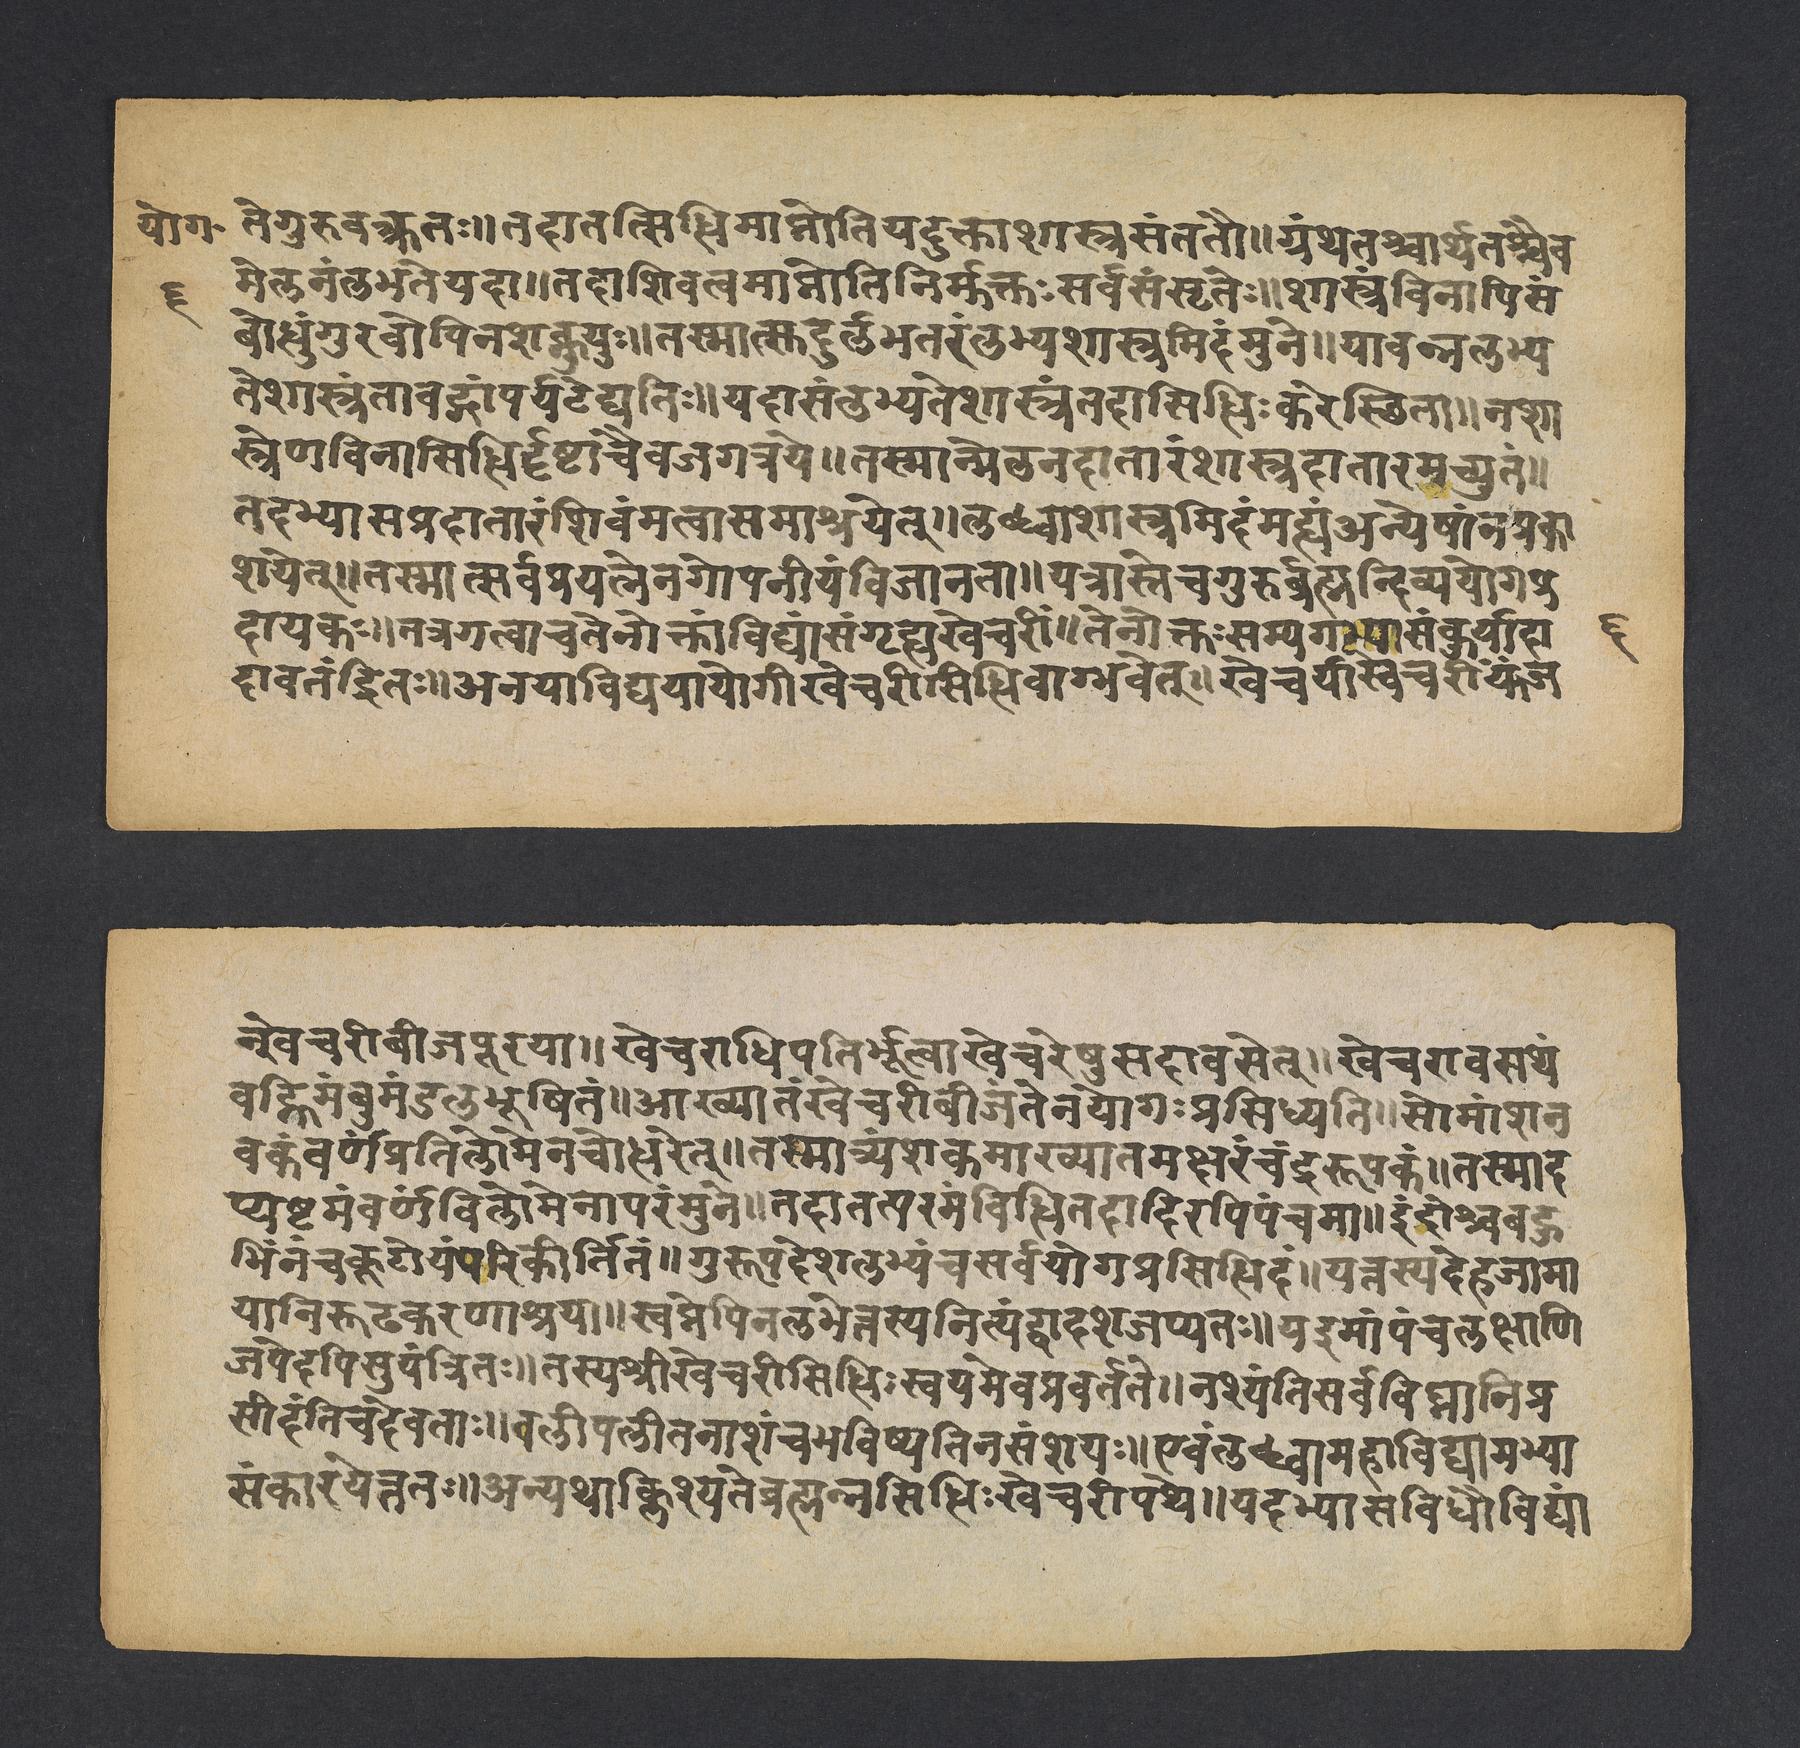 योग॰
६
तेगुरुवक्त्रतः॥तदातत्सिद्धिमाप्नोतियदुक्ताशास्त्रसंततौ॥ग्रंथतश्चार्थतश्चैव
मेलनंलभतेयदा॥तदाशिवत्वमाप्नोतिनिर्मुक्तःसर्वसंसृतेः॥शास्त्रंविनापिसं
बोद्धुंगुरवोपिनशक्नुयुः॥तस्मात्सुदुर्लभतरंलभ्यशास्त्रमिदंमुने॥यावन्नलभ्य
तेशास्त्रंतावद्गांपर्यटेद्यतिः॥यदासंलभ्यतेशास्त्रंतदासिद्धिःकरेस्थिता॥नशा
स्त्रेणविनासिद्धिर्दृष्टाचैवजगत्रये॥तस्मान्मेलनदातारंशास्त्रदातारमच्युतं॥
तदभ्यासप्रदातारंशिवंमत्वासमाश्रयेत्॥लब्ध्वाशास्त्रमिदंमह्यंअन्येषांनप्रका
शयेत्॥तस्मात्सर्वप्रयत्नेनगोपनीयंविजानता॥यत्रास्तेचगुरुर्ब्रह्मन्दिव्ययोगप्र
दायकः॥तत्रगत्वाचतेनोक्तांविद्यांसंगृह्यखेचरीं॥तेनोक्तःसम्यगभ्यासंकुर्यादा
६
दावतंद्रितः॥अनयाविद्ययायोगीखेचरीसिद्धिवाग्भवेत्॥खेचर्याखेचरींयुंज
न्खेचरीबीजपूरया॥खेचराधिपतिर्भूत्वाखेचरेषुसदावसेत्॥खेचरावसथं
वह्निमंबुमंडलभूषितं॥आख्यातंखेचरीबीजंतेनयोगःप्रसिध्यति॥सोमांशन
वकंवर्णंप्रतिलोमेनचोद्धरेत्॥तस्मात्र्यंशकमाख्यातमक्षरंचंद्ररूपकं॥तस्माद
प्यष्टमंवर्णंविलोमेनापरंमुने॥तदातत्परमंविद्धितदादिरपिपंचमा॥इंदोश्चबहु
भिंनंचकूटोयंपरिकीर्तितं॥गुरूपदेशलभ्यंचसर्वयोगप्रसिद्धिदं॥यत्तस्यदेहजामा
यानिरूढकरणाश्रया॥स्वप्नेपिनलभेत्तस्यनित्यंद्वादशजप्यतः॥यइमांपंचलक्षाणि
जपेदपिसुयंत्रितः॥तस्यश्रीखेचरीसिद्धिःस्वयमेवप्रवर्तते॥नश्यंतिसर्वविघ्नानिप्र
सीदंतिचदेवताः॥वलीपलीतनाशंचभविष्यतिनसंशयः॥एवंलब्ध्वामहाविद्यामभ्या
संकारयेत्ततः॥अन्यथाक्लिश्यतेब्रह्मन्नसिद्धिःखेचरीपथे॥यदभ्यासविधौविद्यां